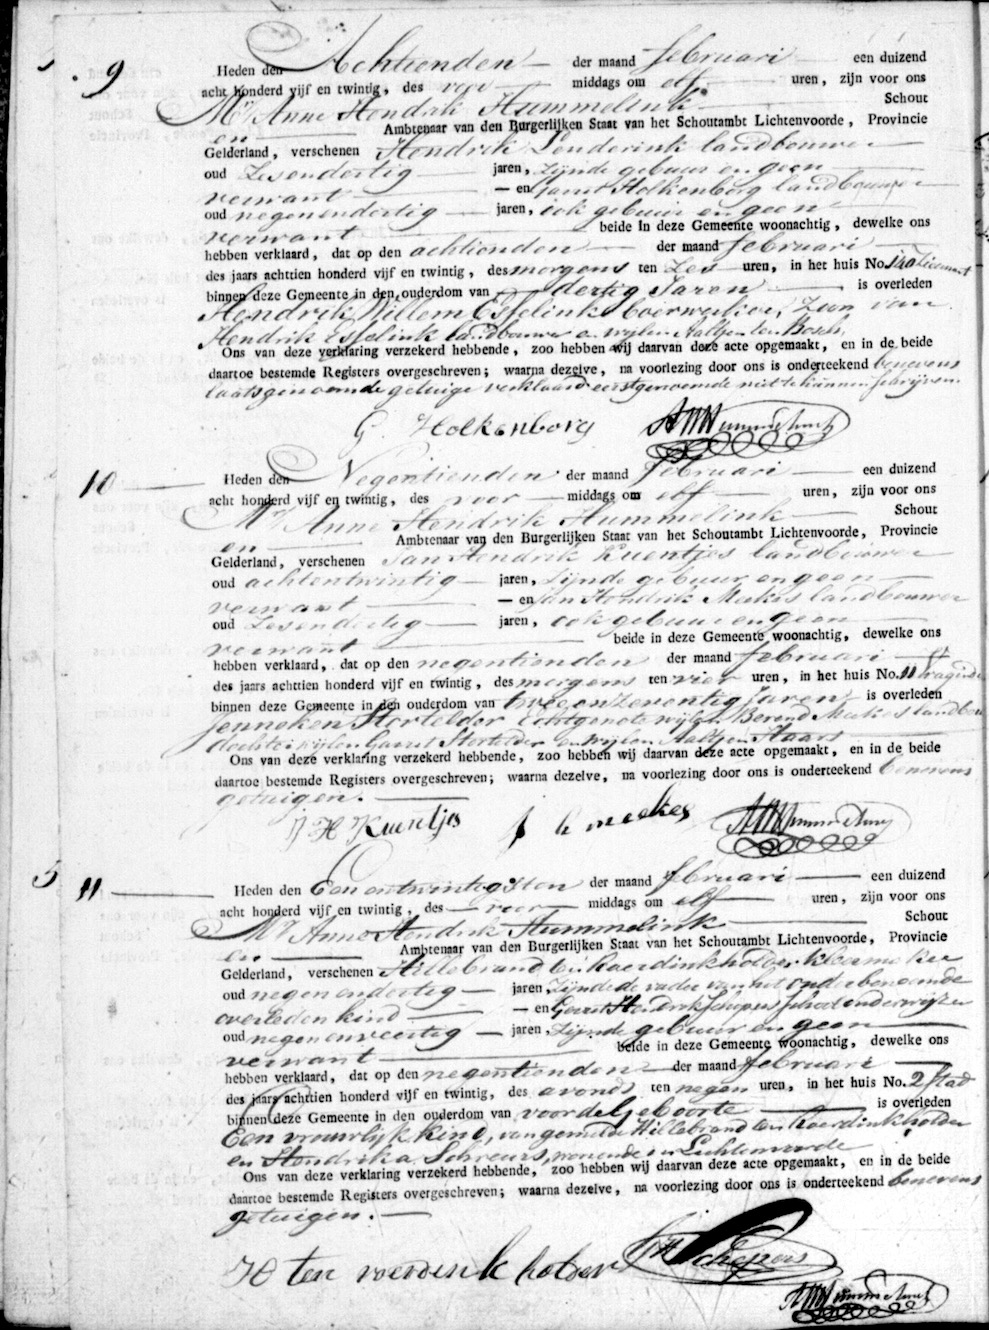 9 Heden den Achttienden der maand februari een duizend
acht honderd vijf en twintig, des voor middags om elf uren, zijn voor ons
Mr Anne Hendrik Hummelink Schout
en Ambtenaar van den Burgerlijken Staat van het Schoutambt Lichtenvoorde, Provincie
Gelderland, verschenen Hendrik landbouwer
oud Zesendertig jaren, zijnde gebuur en geen
verwant en Garrit Holkenborg landbouwer
oud negenendertig jaren, ook gebuur en geen
verwant beide in deze Gemeente woonachtig, dewelke ons
hebben verklaard, dat op den achtienden der maand februari
des jaars achttien honderd vijf en twintig, des morgens ten Zes uren, in het huis No.
binnen deze Gemeente in den ouderdom van dertig Jaren is overleden
Hendrik Willem Esselink boerwerker, Zoon van
Hendrik Esselink landbouwer en wijlen Aaltjen ten Bosch,
Ons van deze verklaring verzekerd hebbende, zoo hebben wij daarvan deze acte opgemaakt, en in de beide
daartoe bestemde Registers overgeschreven; waarna dezelve, na voorlezing door ons is onderteekend benevens
laatsgenoemde getuige verklaard eerstgenoemde niet te kunnen schrijven.
G Holkenborg AHHummelinck
10 Heden den Negentienden der maand februari een duizend
acht honderd vijf en twintig, des voor middags om elf uren, zijn voor ons
Mr Anne Hendrik Hummelink Schout
en Ambtenaar van den Burgerlijken Staat van het Schoutambt Lichtenvoorde, Provincie
Gelderland, verschenen Jan Hendrik Kuentjes landbouwer
oud achtentwintig jaren, zijnde gebuur en geen
verwant en Jan Hendrik Meekes landbouwer
oud Zesendertig jaren, ook gebuur en geen
verwant beide in deze Gemeente woonachtig, dewelke ons
hebben verklaard, dat op den negentienden der maand februari
des jaars achttien honderd vijf en twintig, des morgens ten vier uren, in het huis No. 11
binnen deze Gemeente in den ouderdom van tweeenzeventig Jaren is overleden
Jenneken Stortelder Echtgenote wijlen Berend Meekes
dochter wijlen Garrit Stortelder en wijlen Aaltjen
Ons van deze verklaring verzekerd hebbende, zoo hebben wij daarvan deze acte opgemaakt, en in de beide
daartoe bestemde Registers overgeschreven; waarna dezelve, na voorlezing door ons is onderteekend benevens
getuigen.
J H Kuentjes J h meekes AHHummelinck
11 Heden den Een entwintigsten der maand februari een duizend
acht honderd vijf en twintig, des voor middags om elf uren, zijn voor ons
Mr Anne Hendrik Hummelink Schout
en Ambtenaar van den Burgerlijken Staat van het Schoutambt Lichtenvoorde, Provincie
Gelderland, verschenen Hillebrand ten Roerdinkholder kleermaker
oud negenendertig jaren, Zijnde de vader van het onderbenoemde
overleden kind en Gerrit Hendrik Schepers Schoolonderwijzer
oud negenenveertig jaren, Zijnde gebuur en geen
verwant beide in deze Gemeente woonachtig, dewelke ons
hebben verklaard, dat op den negentienden der maand februari
des jaars achttien honderd vijf en twintig, des avonds ten negen uren, in het huis No. 2 stad
binnen deze Gemeente in den ouderdom van voor de Geboorte is overleden
Een vrouwlijk kind, van gemelde Hillebrand ten Roerdinkholder
en Hendrika Schreurs, wonende in Lichtenvoorde
Ons van deze verklaring verzekerd hebbende, zoo hebben wij daarvan deze acte opgemaakt, en in de beide
daartoe bestemde Registers overgeschreven; waarna dezelve, na voorlezing door ons is onderteekend benevens
getuigen.
H ten roerdinkholder GHSchepers
AHHummelinck